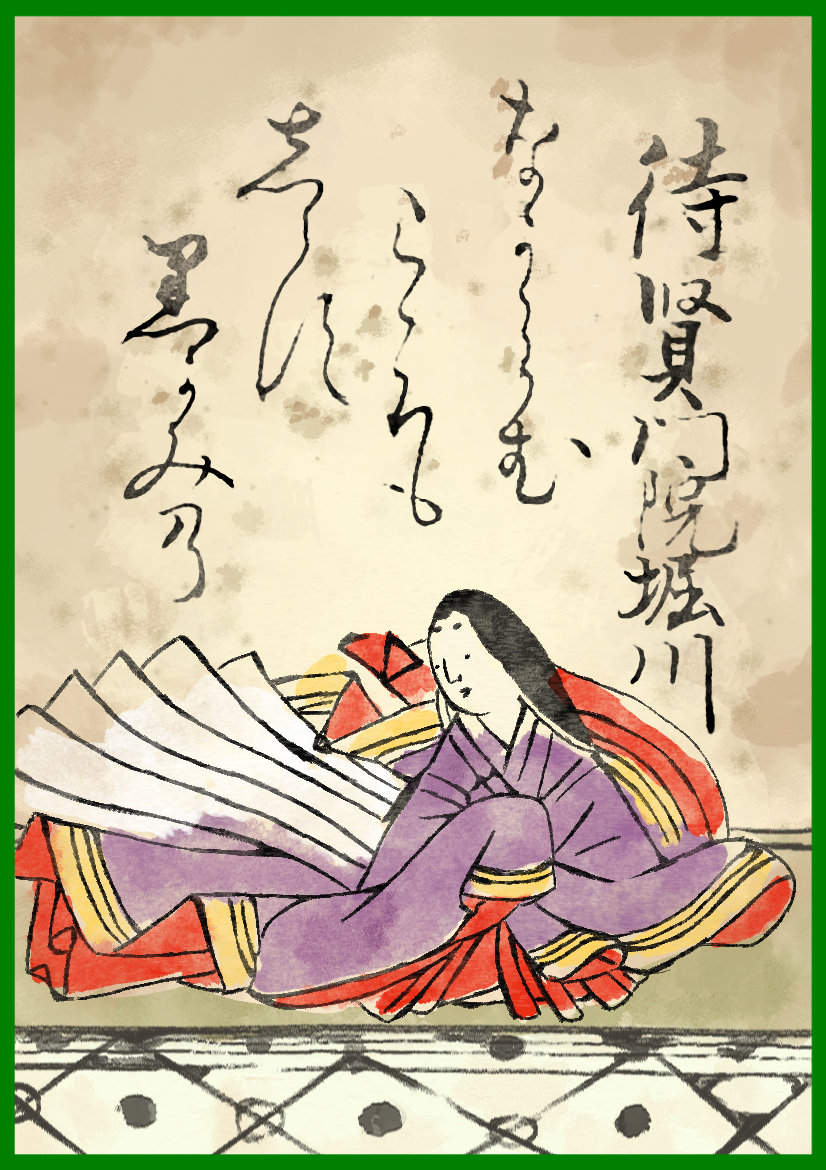 待賢門院堀川
ながゝらむ
こゝろも
志らす
黒かみの